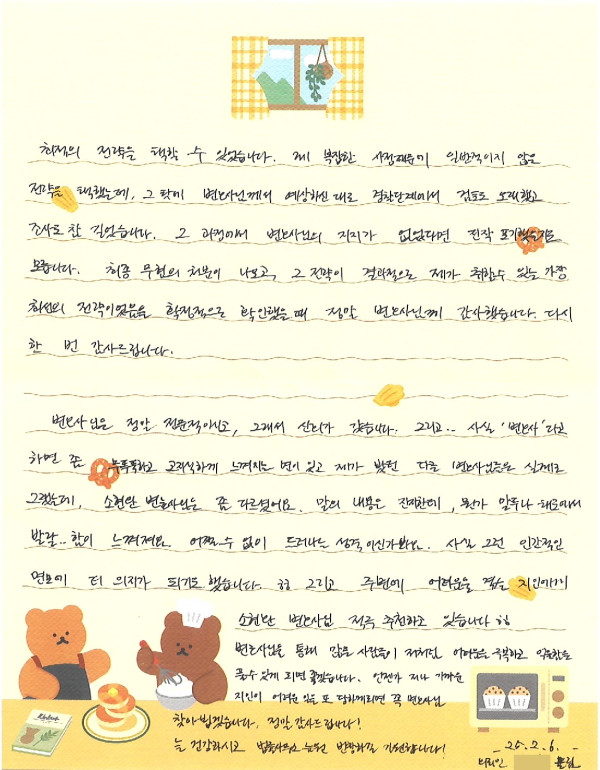 최적의 전략을 택할 수 있었습니다. 제 복잡한 사정때문에 일반적이지 않은
전략을 택했는데, 그 탓에 변호사님께서 예상하신 대로 경찰단계에서 검토도 오래했고
조사도 참 길었습니다. 그 과정에서 변호사님의 지지가 없었다면 진작 포기했을지도
모릅니다. 최종 무혐의 처분이 나오고, 그 전략이 결과적으로 제가 취할 수 있는 가장
최선의 전략이었음을 확정적으로 확인했을 때 정말 변호사님께 감사했습니다. 다시
한 번 감사드립니다.
변호사님은 정말 전문적이시고, 그래서 신뢰가 갔습니다. 그리고.. 사실 '변호사'라고
하면 좀 무뚝뚝하고 고지식하게 느껴지는 면이 있고 제가 봤던 다른 변호사님들도 실제로
그랬는데, 소현민 변호사님은 좀 다르셨어요. 말의 내용은 진지한데, 뭔가 말투나 태도에서
발랄..함이 느껴져요. 어쩔 수 없이 드러나는 성격이신가봐요. 사실 그런 인간적인
면모에 더 의지가 되기도 했습니다. ㅎㅎ 그리고 주변에 어려움을 겪는 지인에게
변호사님 적극 추천하고 있습니다 ㅎㅎ
변호사님을 통해 많은 사람들이 저처럼 어려움을 극복하고 억울함을
풀 수 있게 되면 좋겠습니다. 언젠가 저나 가까운
지인이 어려운 일을 또 당하게 되면 꼭 변호사님
찾아뵙겠습니다. 정말 감사드립니다!
늘 건강하시고 번창하길 기원합니다!
25. 2. 6.
의뢰인 올림